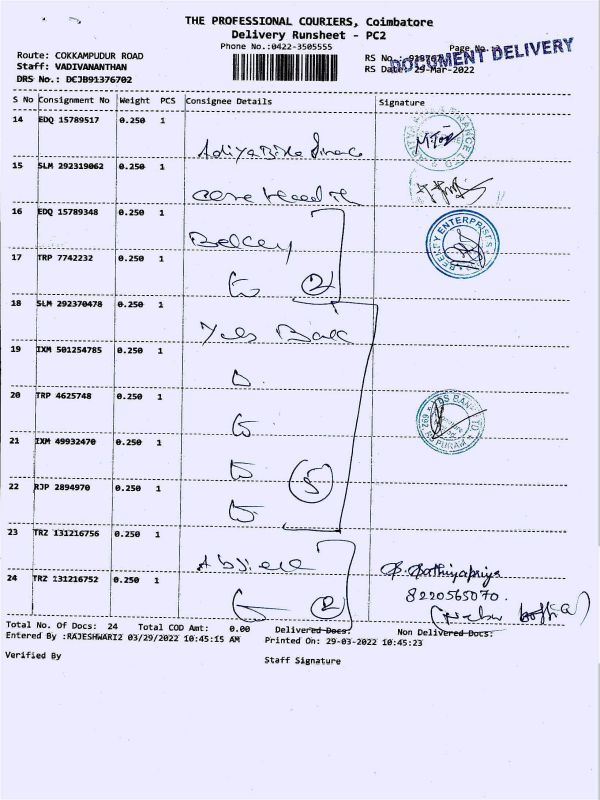 THE PROFESSIONAL COURIERS, Coimbatore
Delivery Runsheet - PC2
Phone No.:0422-3505555
Page No.:
DOCUMENT DELIVERY
Route: COKKAMPUDUR ROAD
Staff: VADIVANANTHAN
DRS No.: DCJB91376702
RS No.:
RS Date: 29-Mar-2022
S No Consignment No Weight PCS Consignee Details Signature
14 EDQ 15789517 0.250 1
15 SLM 292319062 0.250 1
16 EDQ 15789348 0.250 1
ENTERPRISES
17 TRP 7742232 0.250 1
2
18 SLM 292370478 0.250 1
Yes Bank
19 IXM 501254785 0.250 1
20 TRP 4625748 0.250 1
21 IXM 49932470 0.250 1
5
22 RJP 2894970 0.250 1
23 TRZ 131216756 0.250 1
B. Sathiyapriya
24 TRZ 131216752 0.250 1
8220565070.
2
Total No. Of Docs: 24 Total COD Amt: 0.00 Delivered Docs: Non Delivered Docs:
Entered By :RAJESHWARI2 03/29/2022 10:45:15 AM Printed On: 29-03-2022 10:45:23
Verified By Staff Signature